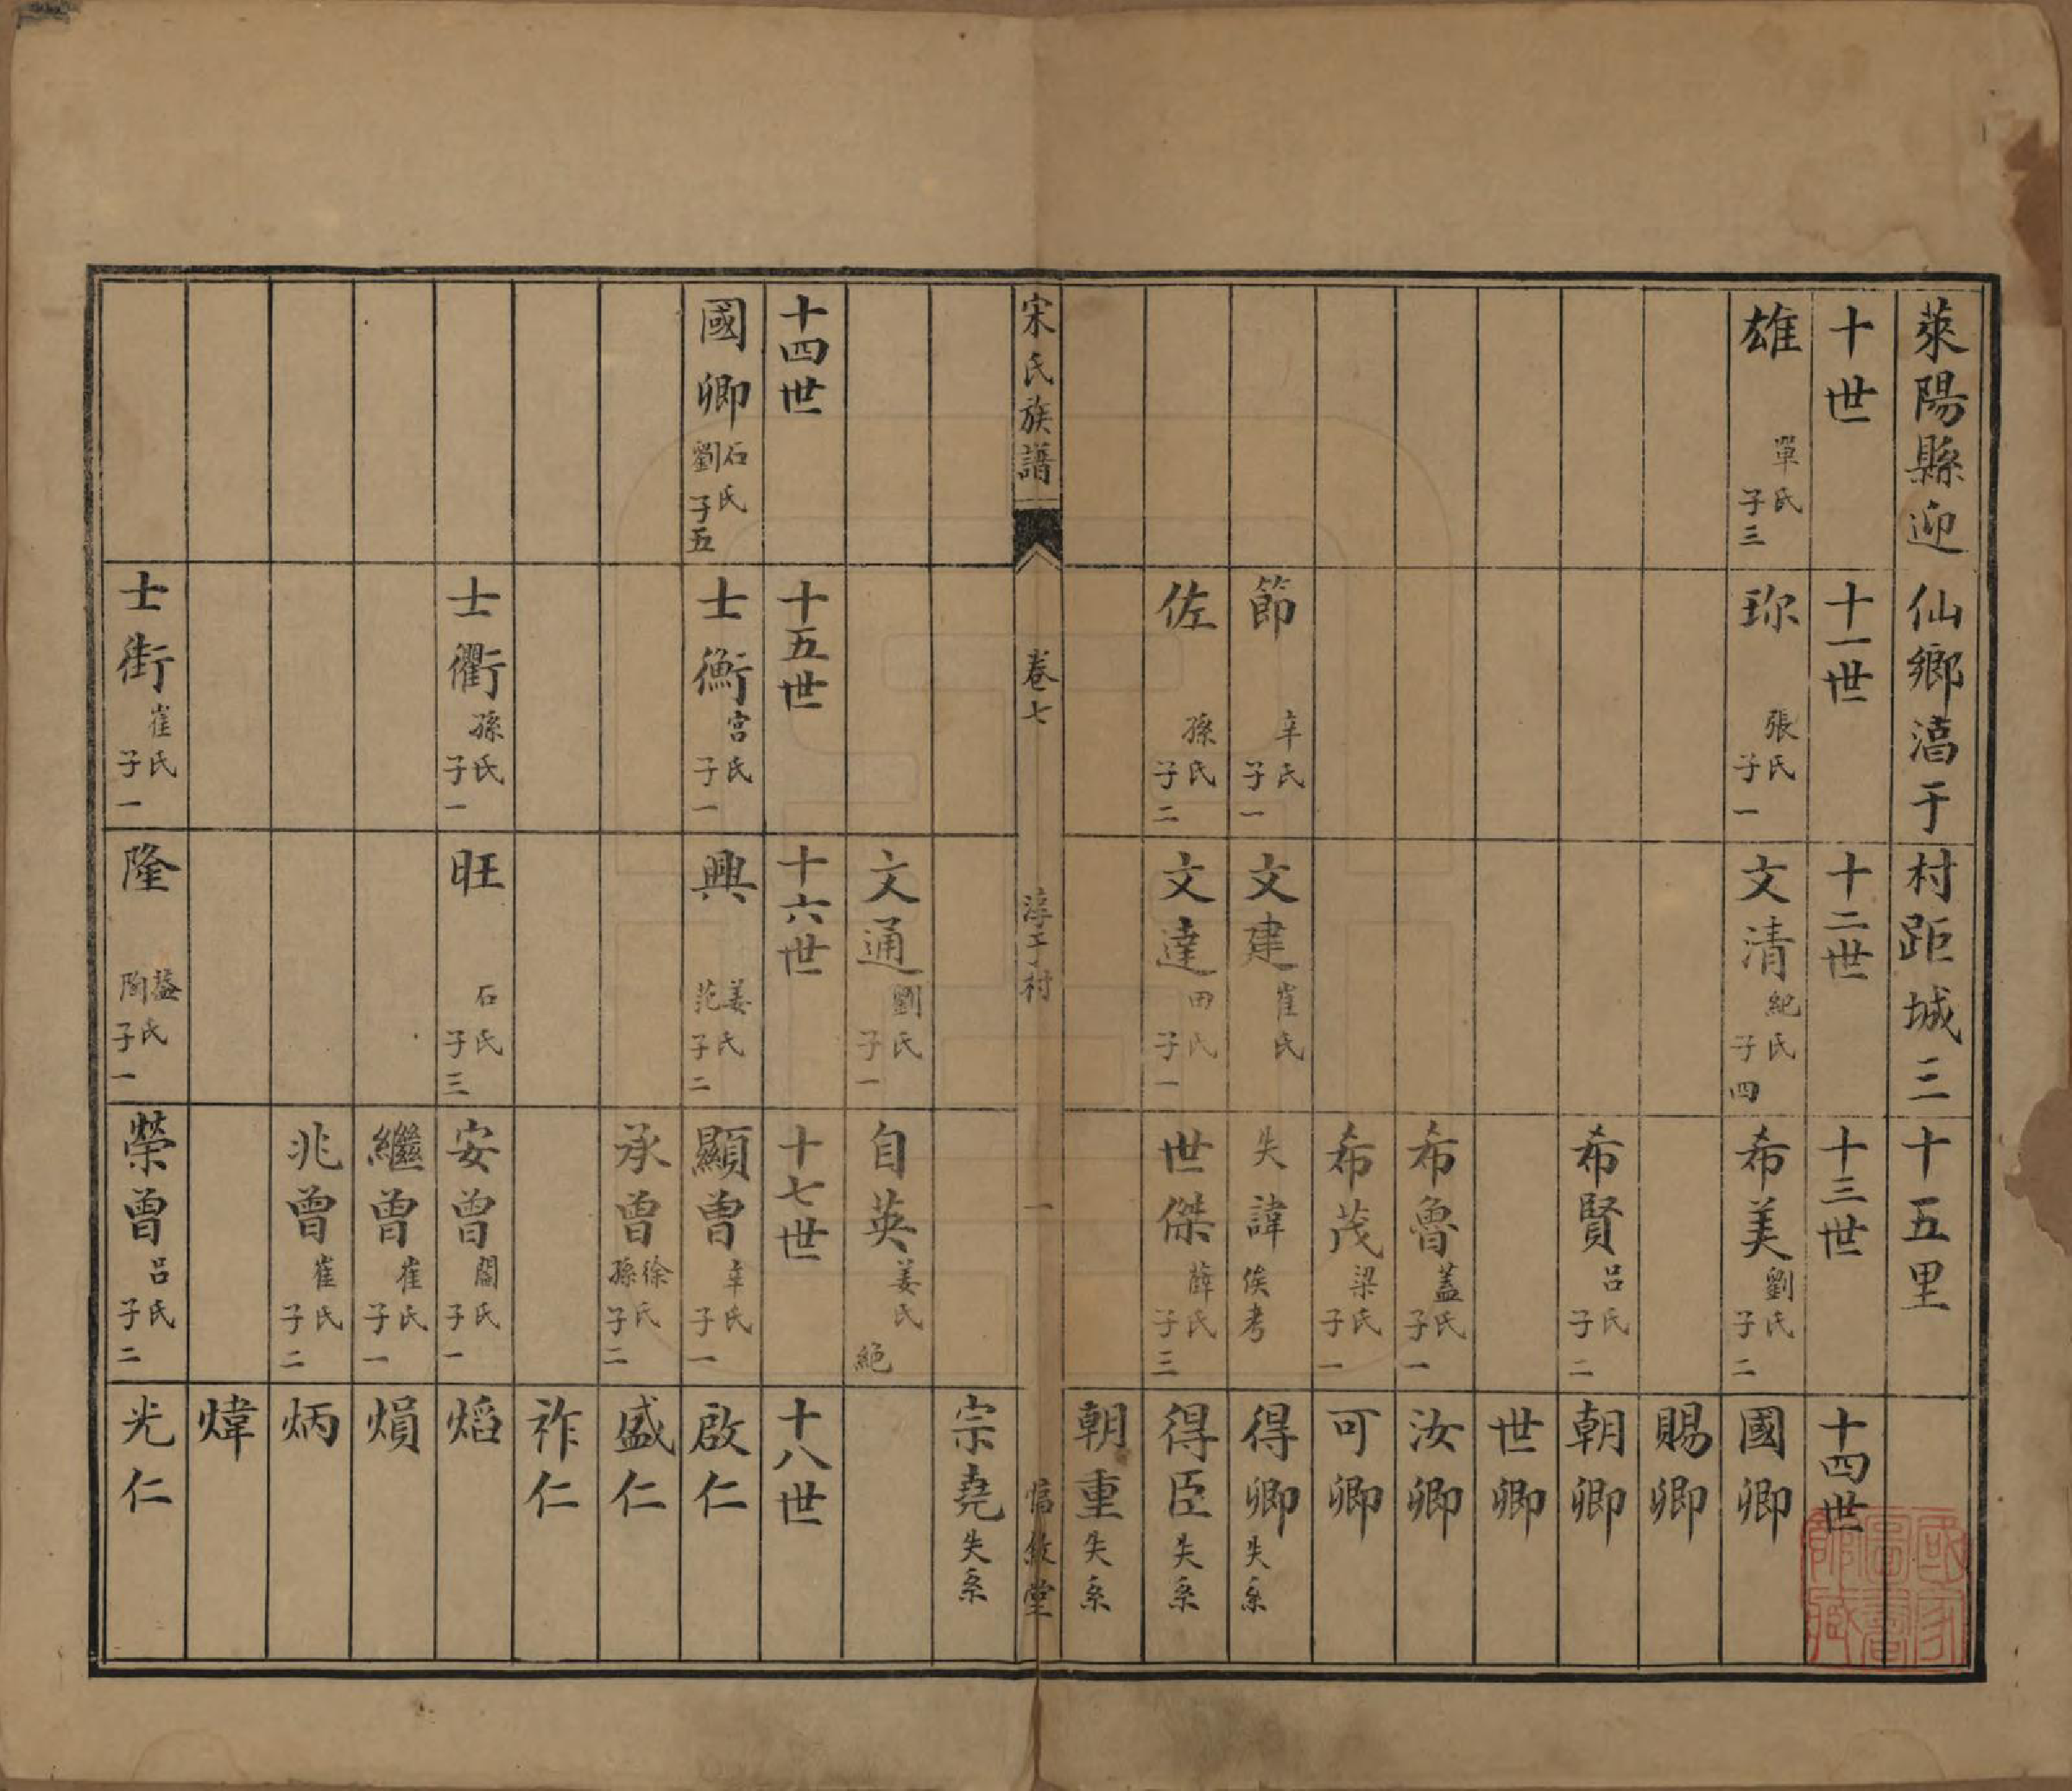 萊陽縣迎仙鄉湻于村距城三十五里
十世 十一世 十二世 十三世 十四世
雄 單氏 子三 珎 張氏 子一 文清 紀氏 子四 希美 劉氏 子二 國卿
賜卿
希賢 呂氏 子二 朝卿
世卿
希魯 蓋氏 子一 汝卿
希茂 梁氏 子一 可卿
節 辛氏 子一 文建 崔氏 失諱 俟考 得卿 失系
佐 孫氏 子二 文達 田氏 子一 世傑 薛氏 子三 得臣 失系
朝重 失系
宋氏族譜 卷七 淳于村 一 惇敘堂
宗堯 失系
文通 劉氏 子一 自英 姜氏 絕
十四世 十五世 十六世 十七世 十八世
國卿 石劉氏 子五 士衡 宮氏 子一 興 姜范氏 子二 顯曾 辛氏 子一 啟仁
承曾 徐孫氏 子二 盛仁
祚仁
士衢 孫氏 子一 旺 石氏 子三 安曾 閻氏 子一 熖
繼曾 崔氏 子一 熉
兆曾 崔氏 子二 炳
煒
士街 崔氏 子一 隆 氏 子一 榮曾 呂氏 子二 光仁
國家圖書館藏